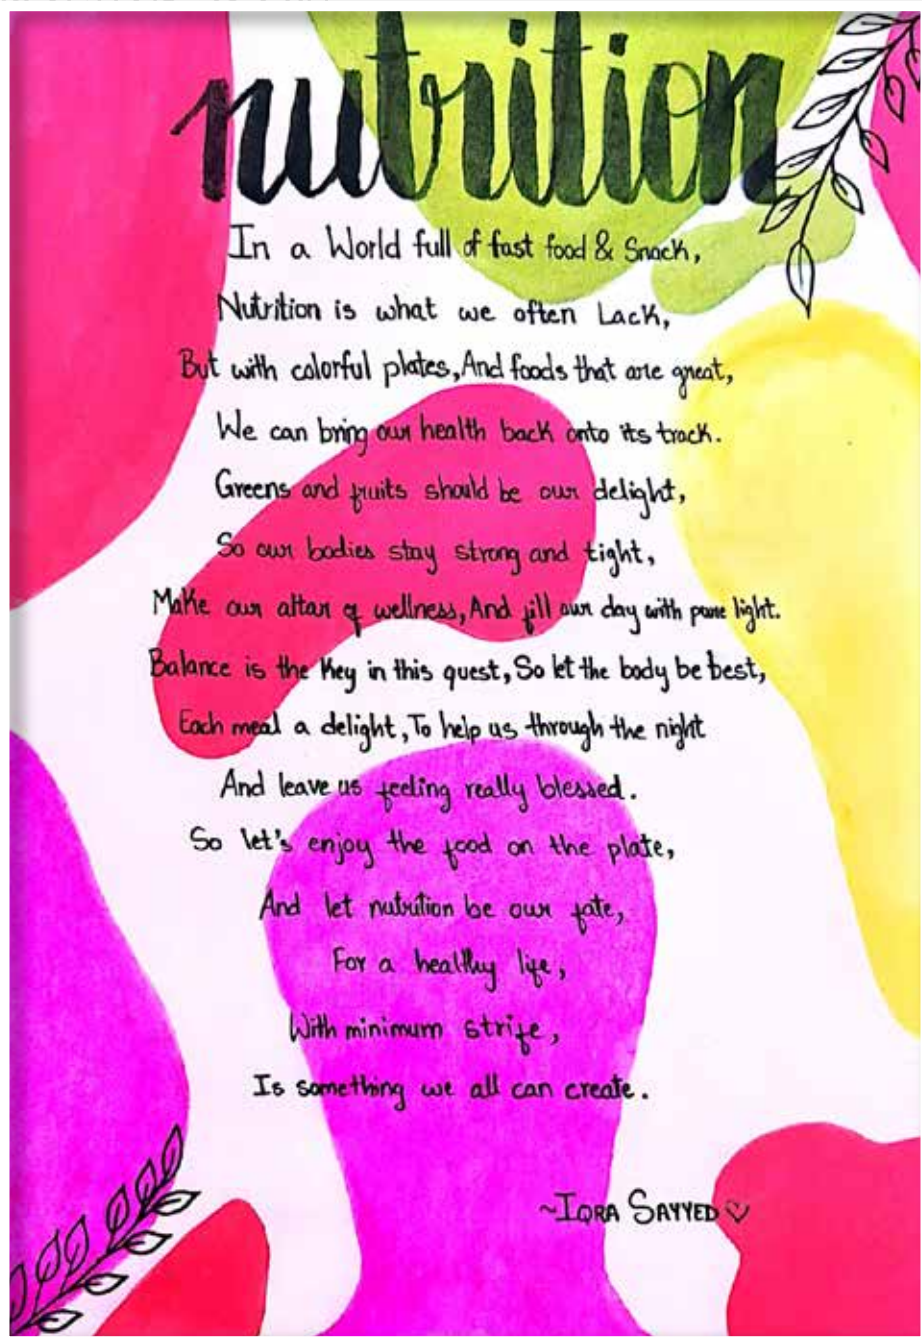 nutrition
In a World full of fast food & Snack,
Nutrition is what we often Lack,
But with colorful plates, And foods that are great,
We can bring our health back onto its track.
Greens and fruits should be our delight,
So our bodies stay strong and tight,
Make our altar of wellness, And fill our day with pure light.
Balance is the Key in this quest, So let the body be best,
Each meal a delight, To help us through the night
And leave us feeling really blessed.
So let's enjoy the food on the plate,
And let nutrition be our fate,
For a healthy life,
With minimum strife,
Is something we all can create.
~IQRA SAYYED ♡